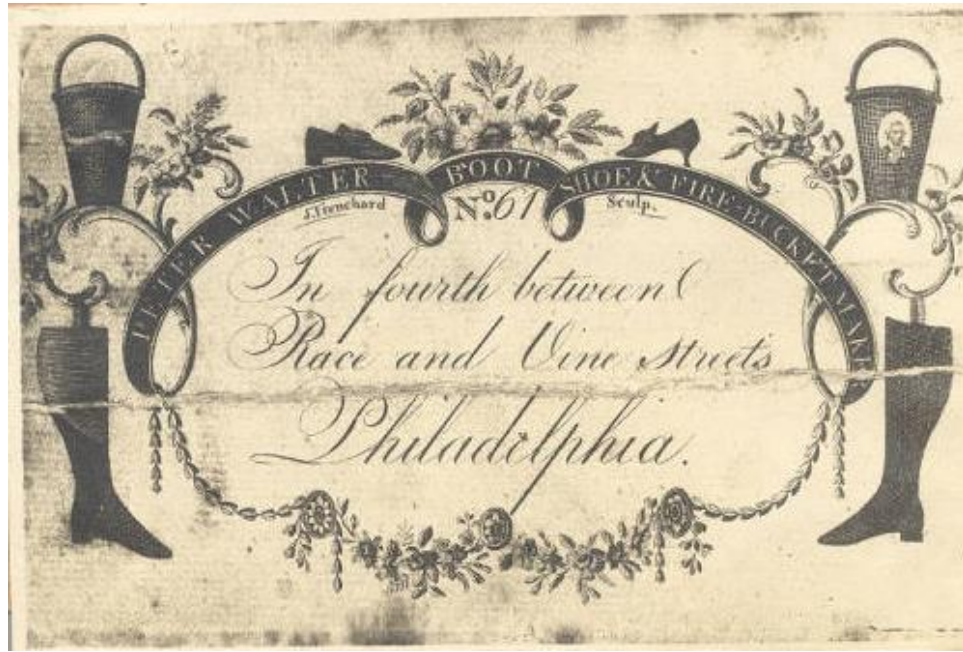 PETER WALTER BOOT SHOE & FIRE-BUCKET MAKER
J. Trenchard Sculp.
No. 61
In fourth between
Race and Vine streets
Philadelphia.